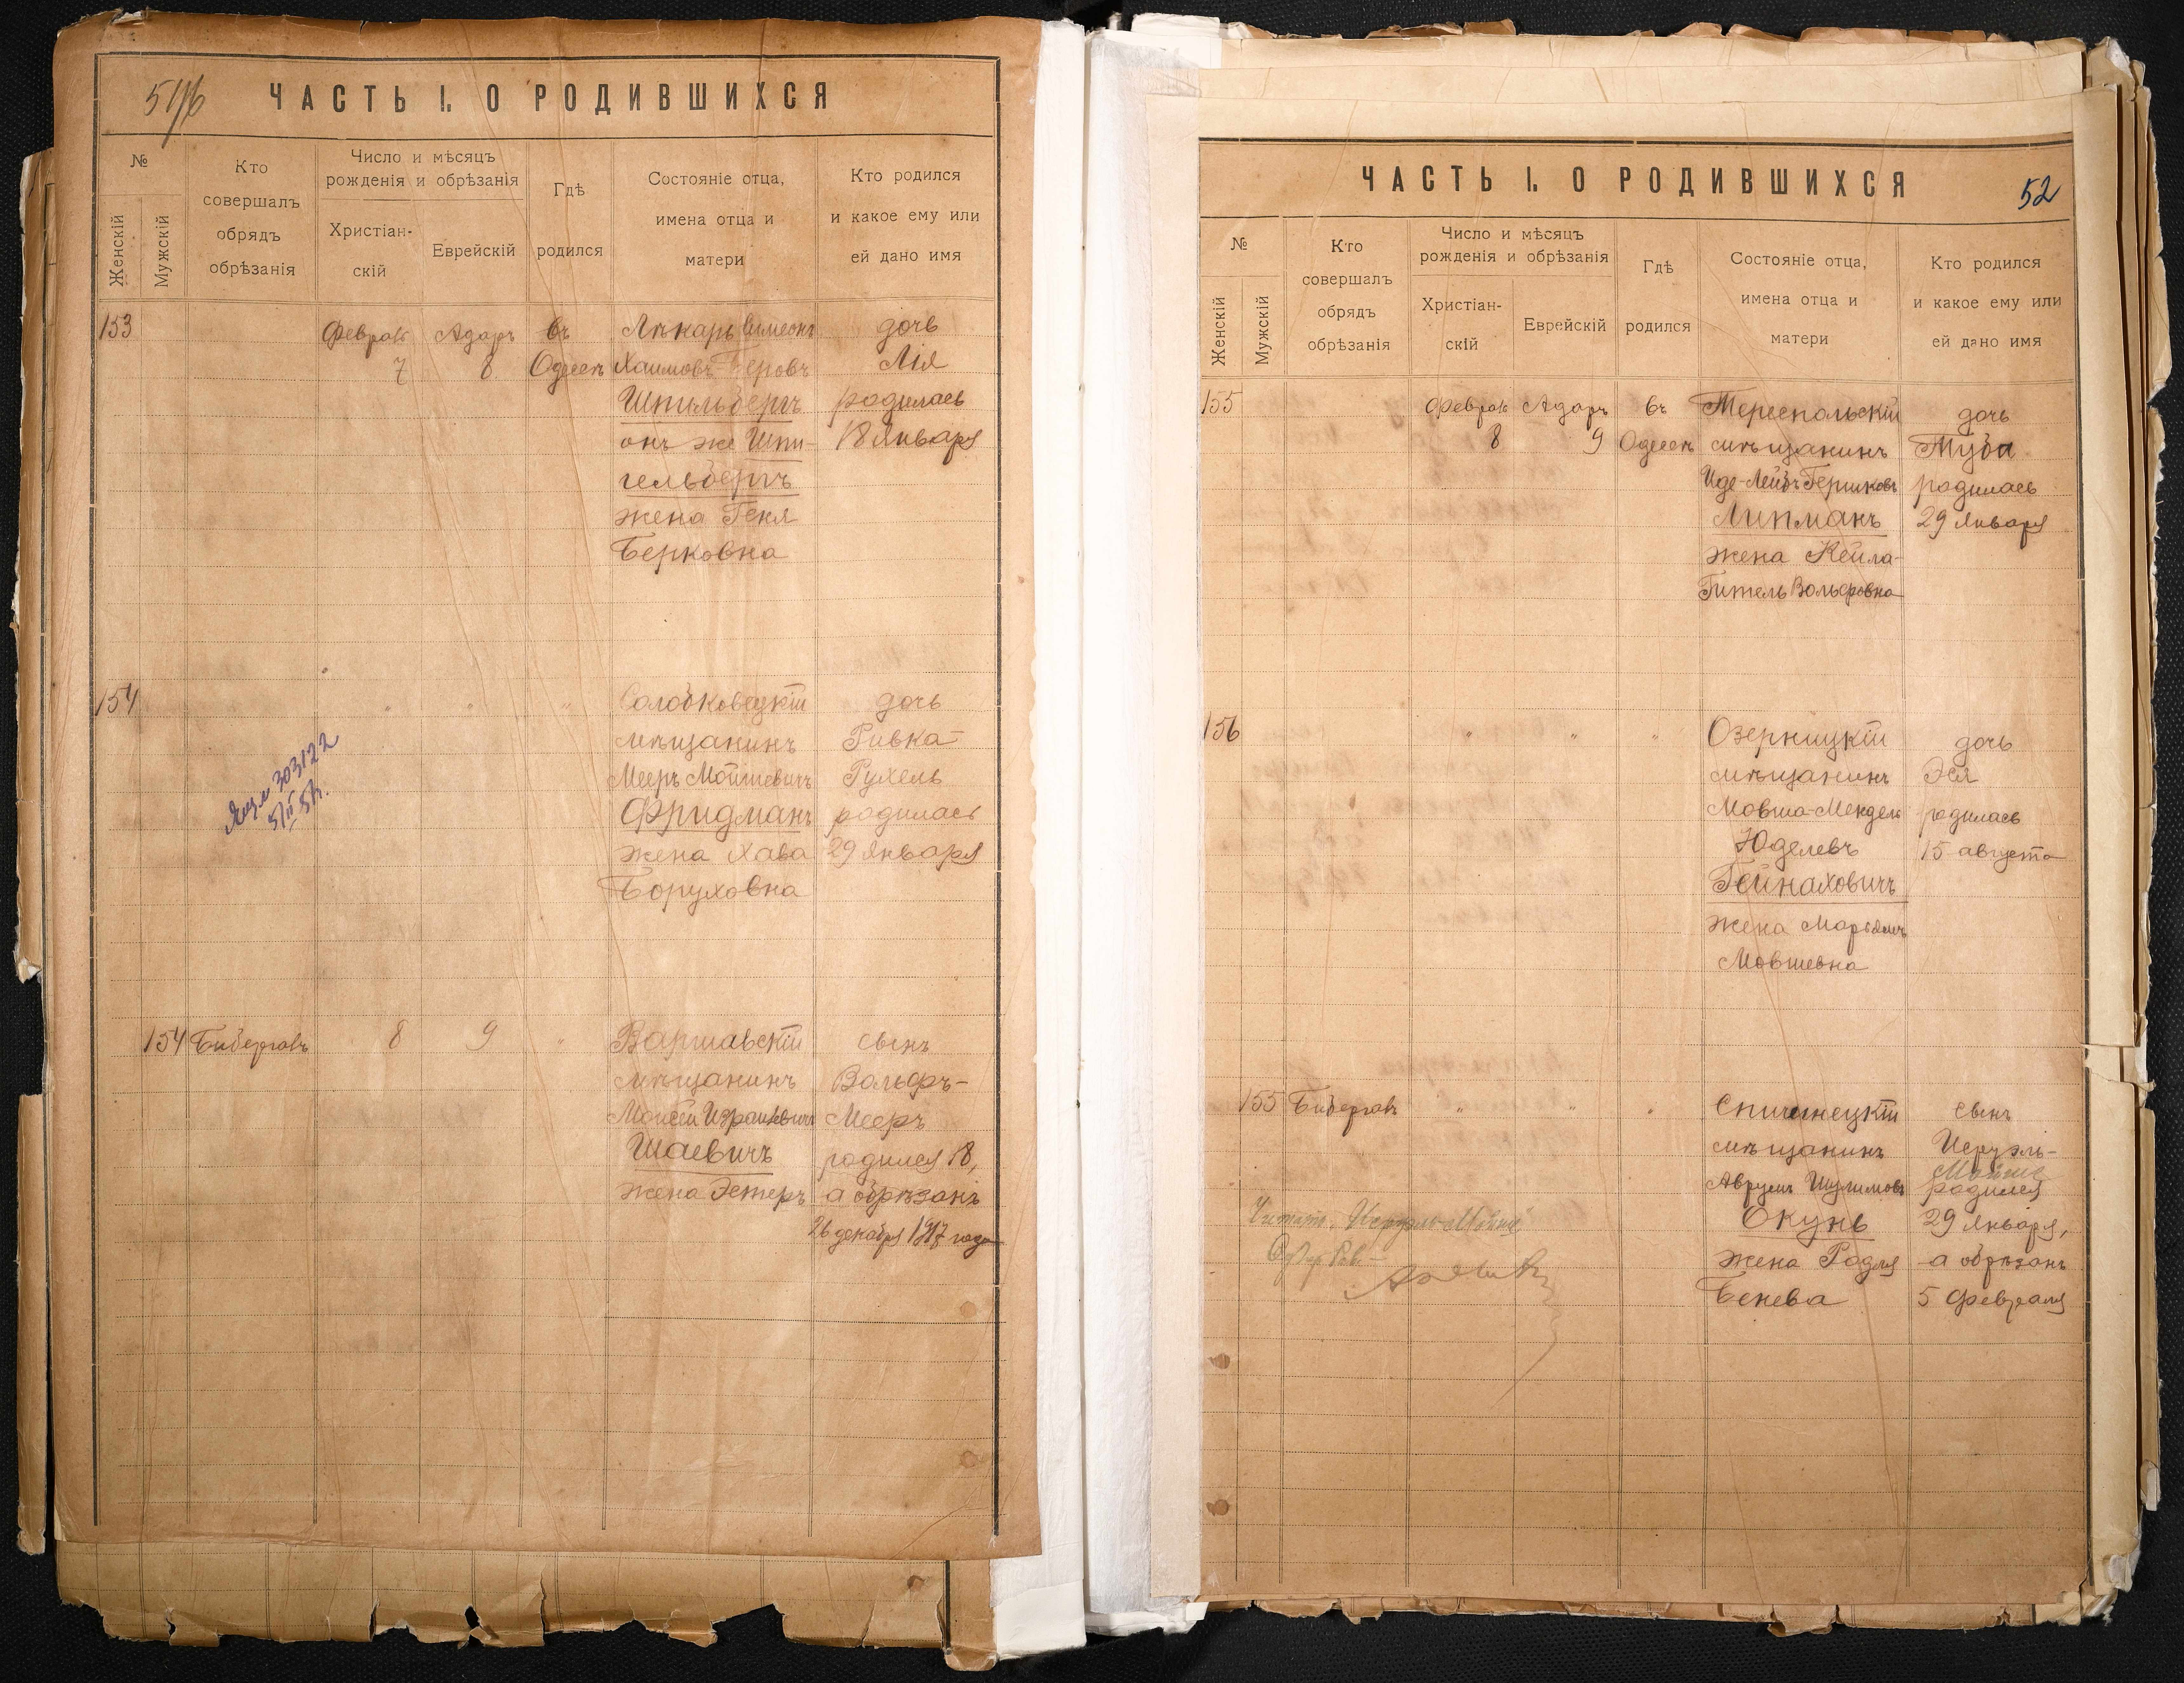 ЧАСТЬ I. О РОДИВШИХСЯ
№
Женскій
Мужскій
Кто
совершалъ
обрядъ
обрѣзанія
Число и мѣсяцъ
рожденія и обрѣзанія
Христіан-
скій
Еврейскій
Гдѣ
родился
Состояніе отца,
имена отца и
матери
Кто родился
и какое ему или
ей дано имя
153
Феврал
7
Адаръ
8
въ
Одессѣ
Лѣкарь Симеонъ
Хаимовъ-Беровъ
Шпильбергъ
онъ же Шпи-
гельбергъ
жена Геня
Берковна
дочь
Лія
родилась
18 Января
154
" " "
Солобковецкій
мѣщанинъ
Мееръ Мошкевичъ
Фридманъ
жена Хава
Боруховна
дочь
Ривка-
Рухель
родилась
29 Января
303122
154
Бибергалъ
8
9
"
Варшавскій
мѣщанинъ
Моисей Израилевичъ
Шаевичъ
жена Эстеръ
сынъ
Вольфъ-
Мееръ
родился 18,
а обрѣзанъ
26 декабря 1917 года
ЧАСТЬ I. О РОДИВШИХСЯ
52
№
Женскій
Мужскій
Кто
совершалъ
обрядъ
обрѣзанія
Число и мѣсяцъ
рожденія и обрѣзанія
Христіан-
скій
Еврейскій
Гдѣ
родился
Состояніе отца,
имена отца и
матери
Кто родился
и какое ему или
ей дано имя
155
Феврал
8
Адаръ
9
въ
Одессѣ
Тереспольскій
мѣщанинъ
Иде-Лейбъ Гершковъ
Липманъ
жена Кейла-
Гитель Вольфовна
дочь
Туба
родилась
29 Января
156
" " "
Озерницкій
мѣщанинъ
Мовша-Мендель
Юделевъ
Гейнаховичъ
жена Маріямъ
Мовшевна
дочь
Эся
родилась
15 августа
155
Бибергалъ
" " "
Спичинецкій
мѣщанинъ
Аврумъ Шулимовъ
Окунь
жена Родля
Бенева
сынъ
Исруэль-
Мойше
родился
29 Января,
а обрѣзанъ
5 Февраля